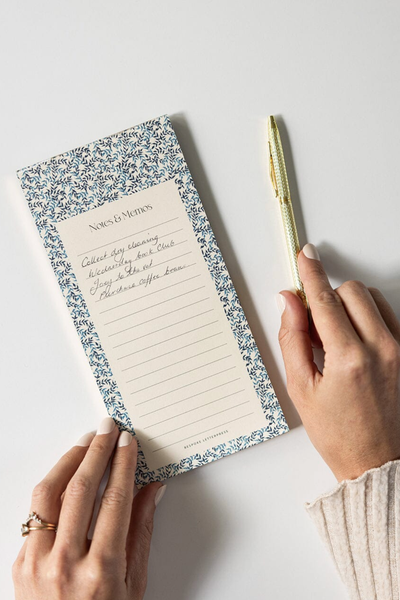 Notes & Memos
Collect dry cleaning
Wednesday book Club
to the vet
Purchase coffee beans
BESPOKE LETTERPRESS